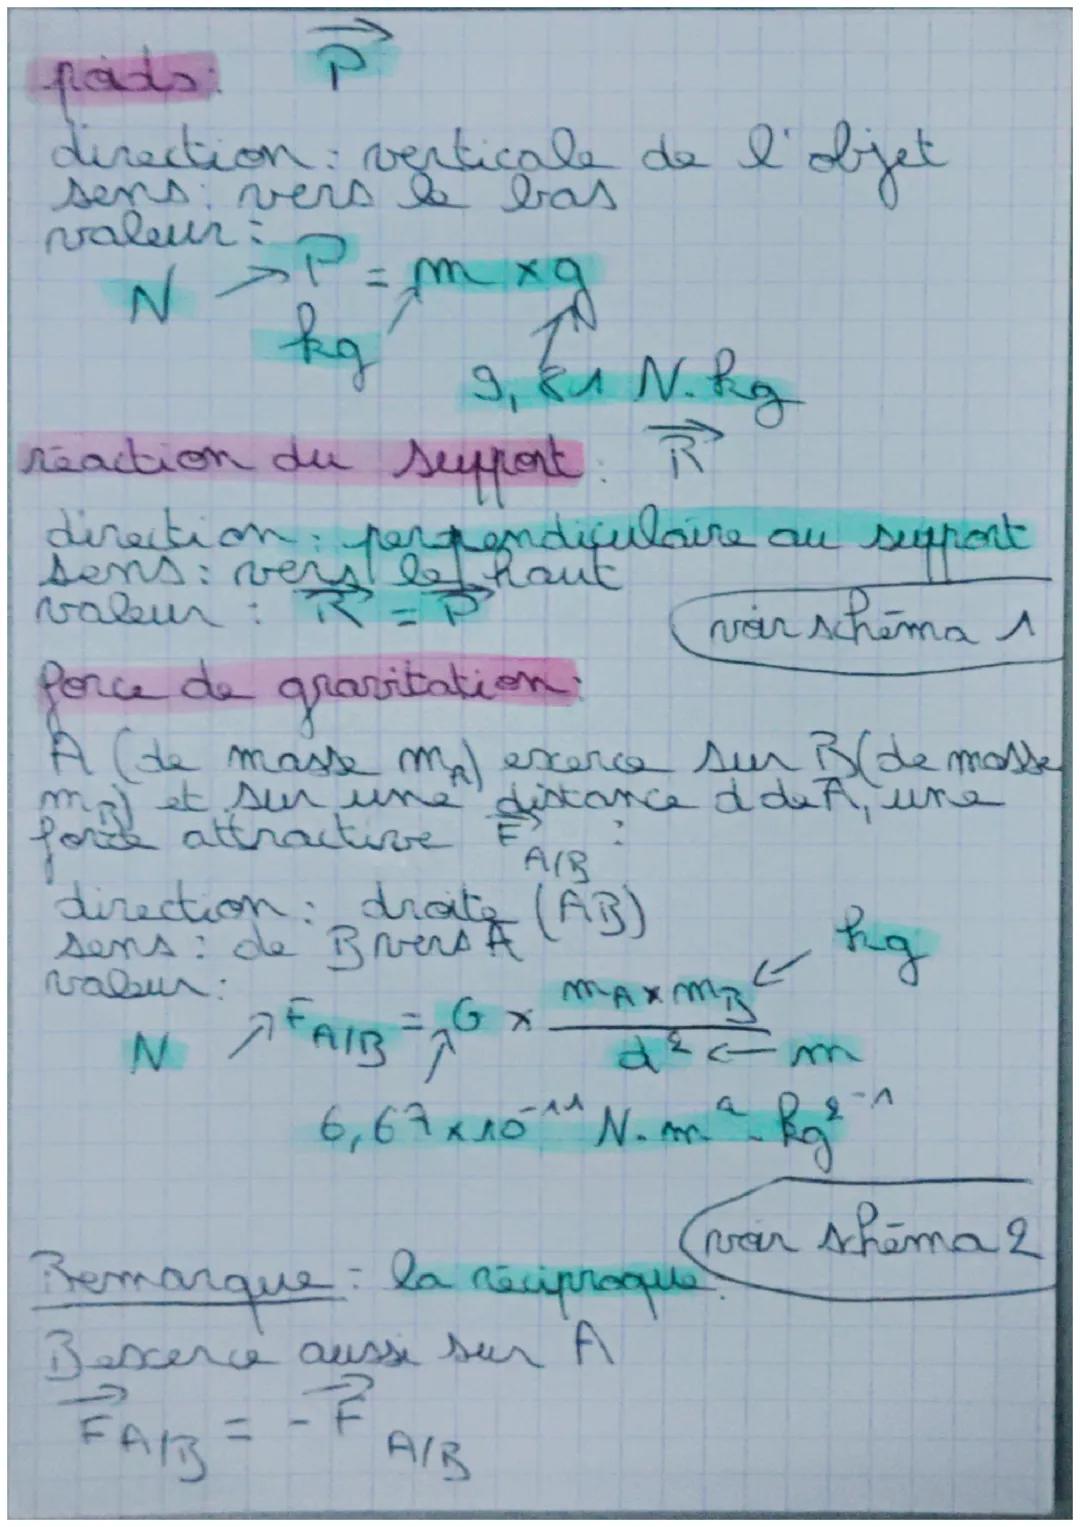 poids: P
direction : verticale de l'objet
sens : vers le bas
valeur :
N → P = m × g
kg
9,81 N.kg
réaction du support : R
direction : perpendiculaire au support
sens : vers le haut
valeur : R = P
voir schéma 1
force de gravitation :
A (de masse mA) exerce sur B (de masse
mB) et sur une distance d de A, une
force attractive F A/B :
direction : droite (AB)
sens : de B vers A
valeur :
kg
N → F A/B = G × mA × mB / d² ← m
6,67 × 10⁻¹¹ N.m².kg²⁻¹
voir schéma 2
Remarque : la réciproque
B exerce aussi sur A
F A/B = - F A/B